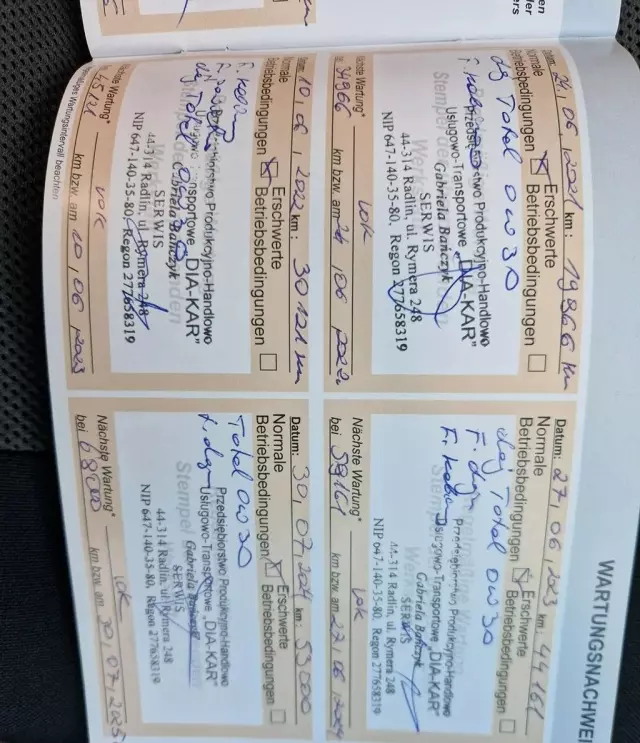 WARTUNGSNACHWEI
Datum: 24, 06, 2021 km: 19866 km
Normale Betriebsbedingungen
Erschwerte Betriebsbedingungen
olej Total 0W30
Przedsiębiorstwo Produkcyjno-Handlowo
Usługowo-Transportowe „DIA-KAR"
Gabriela Bańczyk
SERWIS
44-314 Radlin, ul. Rymera 248
NIP 647-140-35-80, Regon 277658319
Nächste Wartung*
34966 km bzw. am 24, 06, 2022
Datum: 27, 06, 2023 km: 44161
Normale Betriebsbedingungen
Erschwerte Betriebsbedingungen
olej Total 0W30
Przedsiębiorstwo Produkcyjno-Handlowo
Usługowo-Transportowe „DIA-KAR"
Gabriela Bańczyk
SERWIS
44-314 Radlin, ul. Rymera 248
NIP 647-140-35-80, Regon 277658319
Nächste Wartung*
bei 59161 km bzw. am 27, 06, 2024
Datum: 10, 06, 2022 km: 30121 km
Normale Betriebsbedingungen
Erschwerte Betriebsbedingungen
olej Total 0W30
Przedsiębiorstwo Produkcyjno-Handlowo
Usługowo-Transportowe „DIA-KAR"
Gabriela Bańczyk
SERWIS
44-314 Radlin, ul. Rymera 248
NIP 647-140-35-80, Regon 277658319
Nächste Wartung*
45121 km bzw. am 10, 06, 2023
Wartungsintervall beachten
Datum: 30, 07, 2024 km: 53000
Normale Betriebsbedingungen
Erschwerte Betriebsbedingungen
Total 0W30
Przedsiębiorstwo Produkcyjno-Handlowo
Usługowo-Transportowe „DIA-KAR"
Gabriela Bańczyk
SERWIS
44-314 Radlin, ul. Rymera 248
NIP 647-140-35-80, Regon 277658319
Nächste Wartung*
bei 68000 km bzw. am 30, 07, 2025